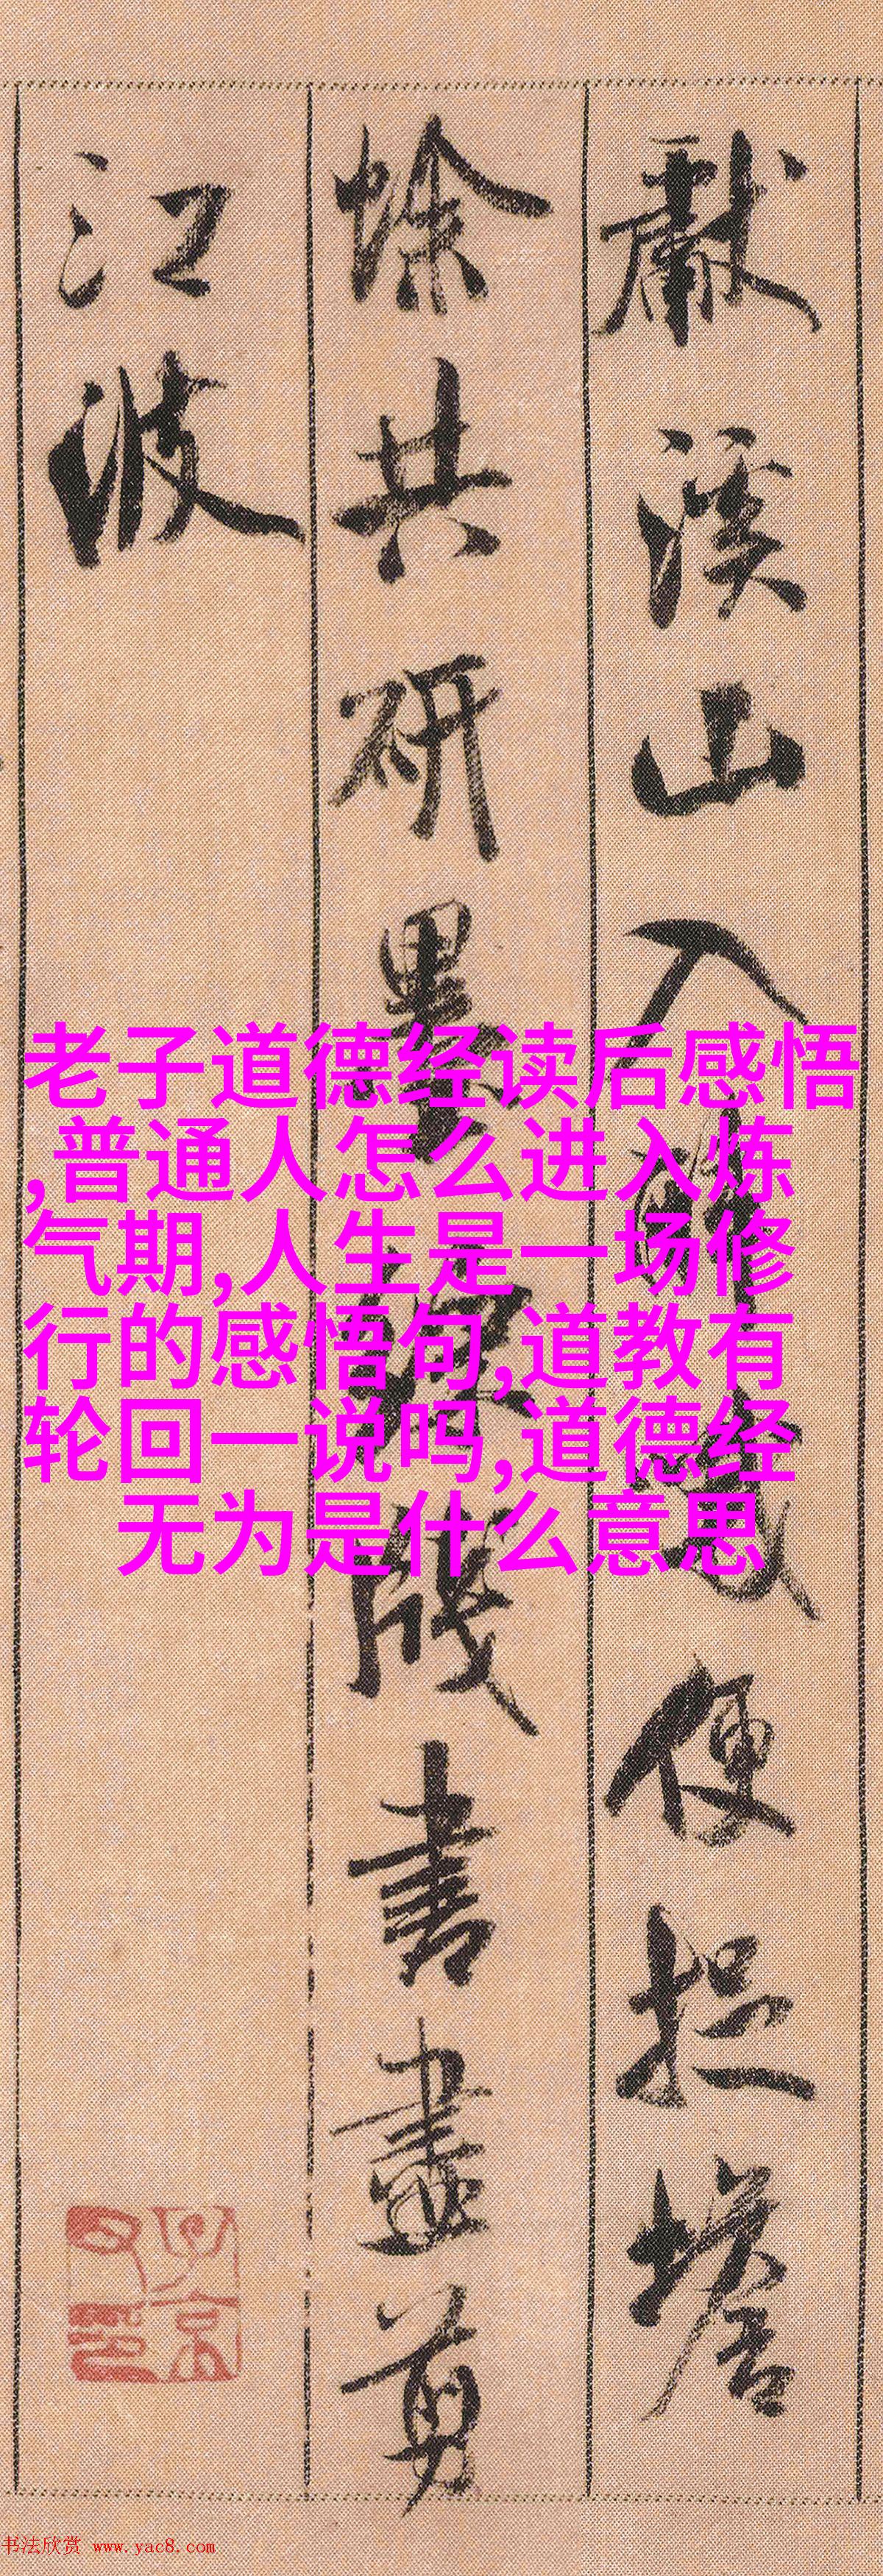 獻溪山入
便捉蟾
蜍共研墨
牋書盡剪
江波
老子道德经读后感悟
,普通人怎么进入炼
气期,人生是一场修
行的感悟句,道教有
轮回一说吗,道德经
无为是什么意思
书法欣赏 www.yac8.com